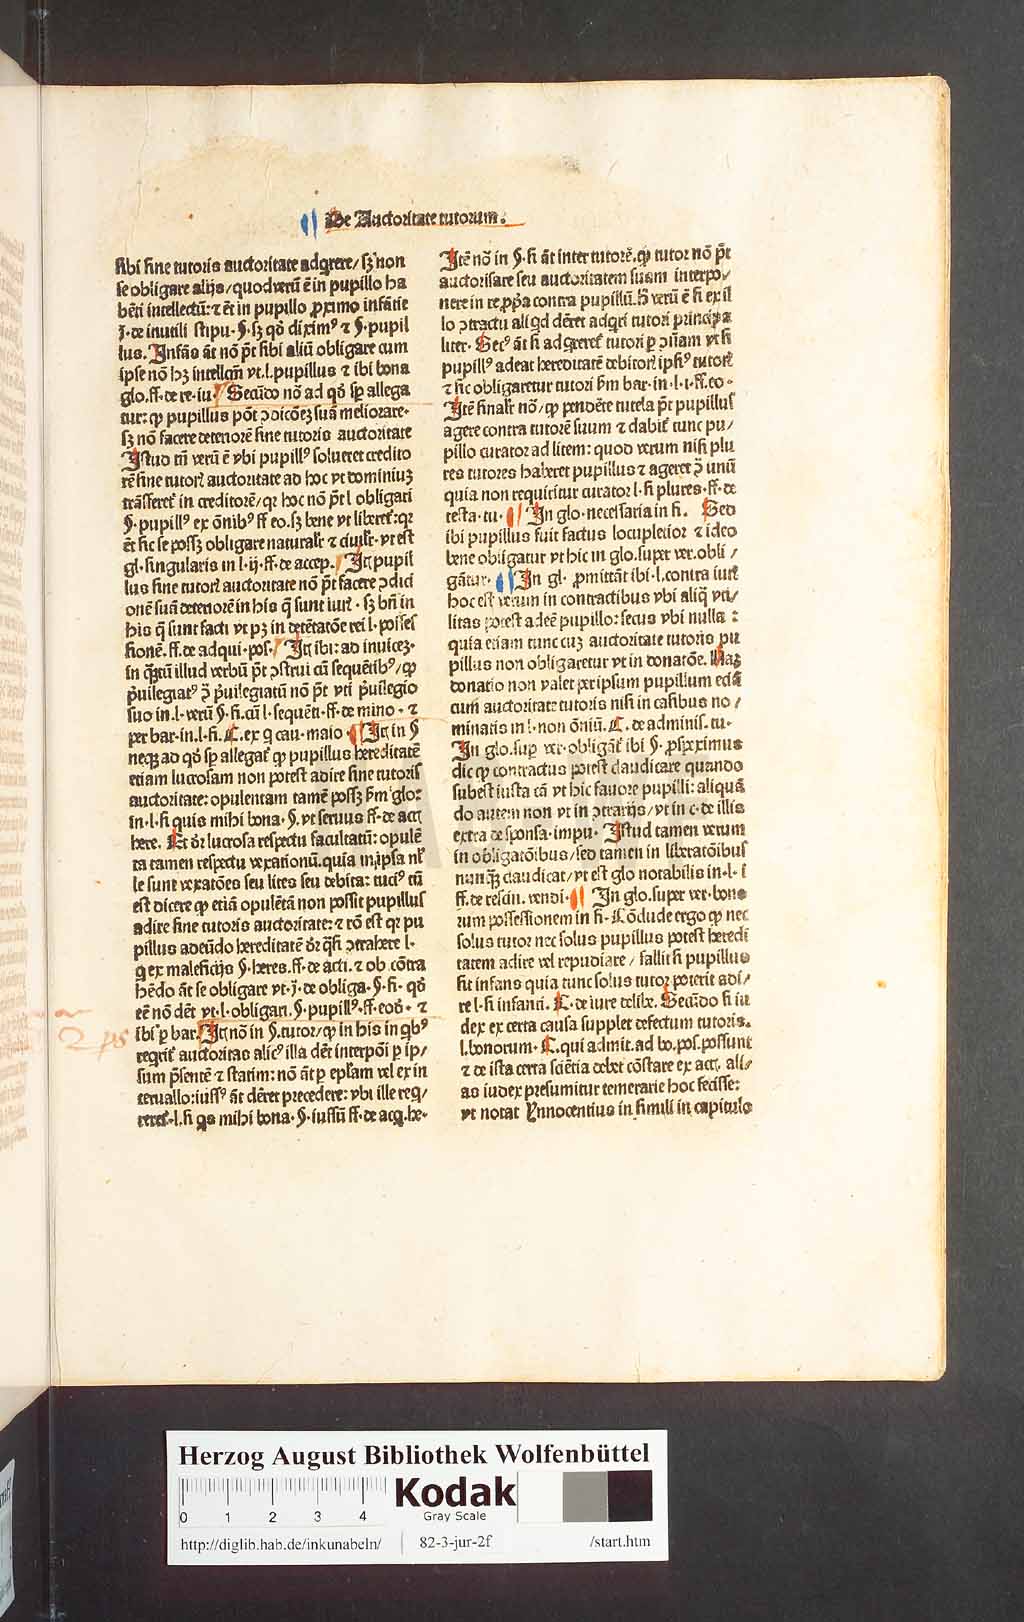 De Auctoritate tutorum.
sibi sine tutoris auctoritate adqrere/ sꝫ non
se obligare alijs/ quod verū ē in pupillo ha
bēti intellectū: ⁊ ēt in pupillo ꝓximo infātie
J. de inutili stipu. §. sꝫ qd̄ diximꝰ ⁊ §. pupil
lus. Infās āt nō pt̄ sibi aliū obligare cum
ipse nō hꝫ intellcm̄ vt. l. pupillus ⁊ ibi bona
glo. ff. de re. iu. Secūdo nō ad qd̄ sp̄ allega
tur: ꝙ pupillus pōt ꝯdicōeꝫ suā meliorare.
sꝫ nō facere deteriorē sine tutoris auctoritate
Istud tn̄ verū ē vbi pupillꝰ solueret credito
rē sine tutor auctoritate ad hoc vt dominiuꝫ
trāsferet in creditorē/ qꝛ hoc nō pt̄ l obligari
§. pupillꝰ ex ōnibꝰ ff eo. sꝫ bene vt liberet: qꝛ
ēt sic se possꝫ obligare naturalr̄ ⁊ ciuilr̄. vt est
gl. singularis in l. ij. ff. de accep. Itꝫ pupil
lus sine tutor auctoritate nō pt̄ facere ꝯdici
onē suā deteriorē in his q̄ sunt iur̄. sꝫ bn̄ in
his q̄ sunt facti vt pꝫ in detētatōe rei l. posses
sionē. ff. de adqui. pos. Itꝫ ibi: ad inuiceꝫ.
in q̄ꝫtū illud verbū pt̄ ꝯstrui cū sequētibꝰ/ ꝙ
p̄uilegiatꝰ ꝯ̄ p̄uilegiatū nō pt̄ vti p̄uilegio
suo in. l. verū §. fi. cū l. sequēti. ff. de mino. ⁊
per bar. in. l. fi. C. ex q cau. maio. Itꝫ in §
neqꝫ ad qd̄ sp̄ allegat ꝙ pupillus hereditatē
etiam lucrosam non potest adire sine tutoris
auctoritate: opulentam tamē possꝫ ẜm glo:
in. l. si quis mihi bona. §. vt seruus ff. de acq
here. Et dr̄ lucrosa respectu facultatū: opulē
ta tamen respectu vexationū. quia in ipsa nl̄
le sunt vexatōes seu lites seu debita: tuciꝰ tn̄
est dicere ꝙ etiā opulētā non possit pupillus
adire sine tutoris auctoritate: ⁊ rō est qꝛ pu
pillus adeūdo hereditatē dr̄ q̄si ꝯtrahere l.
q ex maleficijs §. heres. ff. de acti. ⁊ ob. cōtra
hēdo āt se obligare vt. J. de obliga. §. fi. qd̄
eē nō dēt vt. l. obligari. §. pupillꝰ. ff. eod̄. ⁊
ibi ꝑ bar. Itꝫ nō in §. tutor/ ꝙ in his in qbꝰ
reqrit auctoritas alicꝰ illa dēt interpōi ꝑ ip/
sum p̄sentē ⁊ statim: nō āt ꝑ eplam vel ex in
teruallo: iussꝰ āt dēret precedere: vbi ille req/
reret. l. si qs mihi bona. §. iussū ff. de acq. he.
Itē nō in §. fi āt inter tutorē. ꝙ tutor nō pt̄
auctorisare seu auctoritatem suam interpo/
nere in re ꝓpria contra pupillū. Et verū ē si ex il
lo ꝯtractu aliqd dēret adqri tutori principa
liter. Secꝰ āt si adqreret tutori ꝑ ꝯn̄am vt si
pupillꝰ adeat hereditatē debitor ipsiꝰ tutor
⁊ sic obligaretur tutori ẜm bar. in. l. i. ff. eo.
Itē finalr̄ nō/ ꝙ pendēte tutela pt̄ pupillus
agere contra tutorē suum ⁊ dabit tunc pu/
pillo curator ad litem: quod verum nisi plu
res tutores haberet pupillus ⁊ ageret ꝯ̄ unū
quia non requiritur curator l. si plures. ff. de
testa. tu. In glo. necessaria in fi. Sed
ibi pupillus fuit factus locupletior ⁊ ideo
bene obligatur vt hic in glo. super ver. obli /
gātur. In gl. ꝓmittāt ibi. l. contra iur̄
hoc est verum in contractibus vbi aliq̄ vti/
litas potest adeē pupillo: secus vbi nulla:
quia etiam tunc cuꝫ auctoritate tutoris pu
pillus non obligaretur vt in donatōe. Naꝫ
donatio non valet per ipsum pupillum etiā
cum auctoritate tutoris nisi in casibus no /
minatis in l. non ōniū. C. de adminis. tu.
In glo. sup̄ ver. obligāt ibi §. ꝓspeximus
dic ꝙ contractus potest claudicare quando
subest iusta cā vt hic fauore pupilli: aliquā
do autem non vt in ꝯtrarijs/ vt in c. de illis
extra de sponsa. impu. Istud tamen verum
in obligatōibus/ sed tamen in liberatōibus
nunqꝫ claudicat/ vt est glo notabilis in. l. i
ff. de rescin. vendi. In glo. super ver. bono
rum possessionem in fi. Cōclude ergo ꝙ nec
solus tutor nec solus pupillus potest heredi
tatem adire vel repudiare / fallit si pupillus
sit infans quia tunc solus tutor poterit adi/
re l. si infanti. C. de iure delibe. Secūdo si iu
dex ex certa causa supplet defectum tutoris.
l. bonorum. C. qui admit. ad bo. pos. possunt
⁊ de ista certa sciētia debet cōstare ex actꝭ. ali/
as iudex presumitur temerarie hoc fecisse:
vt notat Ynnocentius in simili in capitulo
Herzog August Bibliothek Wolfenbüttel
0 1 2 3 4
Kodak
Gray Scale
http://diglib.hab.de/inkunabeln/ 82-3-jur-2f /start.htm